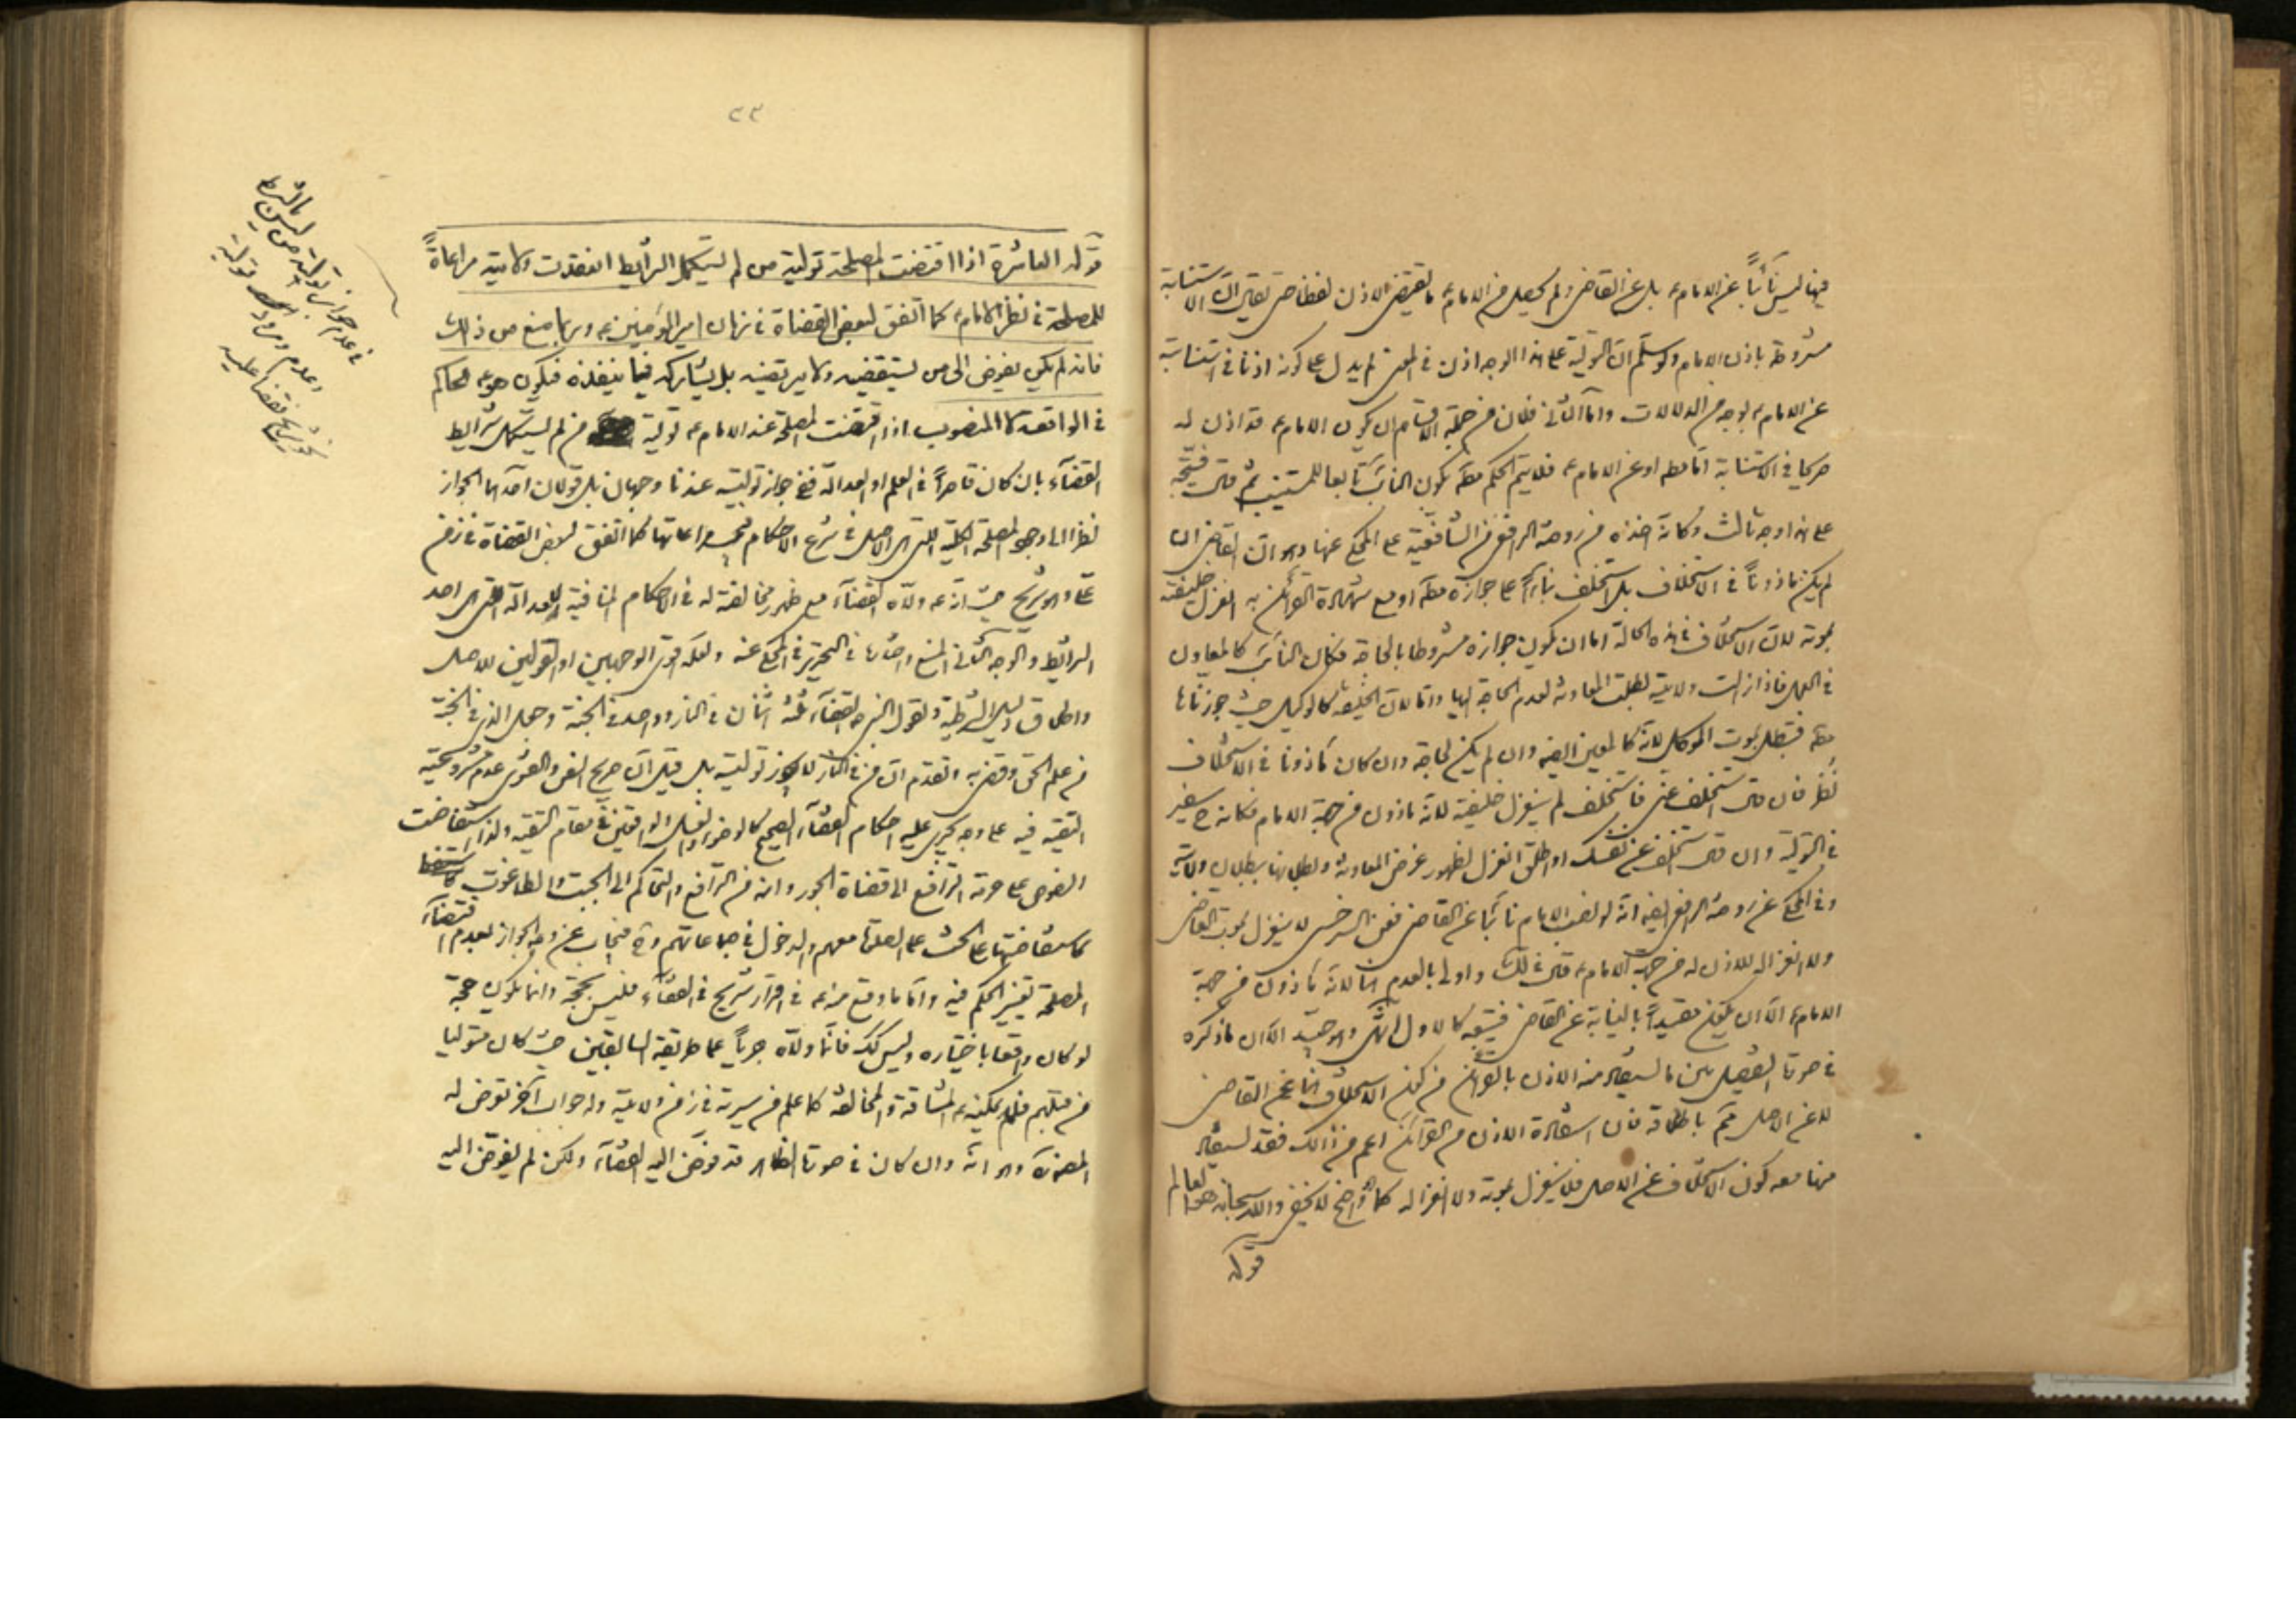 فيها ليس نائباً عن الامام ع بل عن القاضي ولم يحصل من الامام ع ما يقتضي الاذن لفظا حتى يقال ان الاستنابة
مشروطة باذن الامام ولو سلم ان التولية على هذا الوجه اذن في المعنى لم يدل على كونه اذنا في استنابة
عن الامام ع بوجه من الدلالات واما الثاني فلان من جملة الاقسام ان يكون الامام ع قد اذن له
صريحا في الاستنابة اما مطه او عن الامام ع فلا يتم الحكم مطه بكون النائب تابعا للمستنيب ثم قال فيتجه
على هذا وجه ثالث وكانه اخذه من روضة الرافعي من الشافعية على المحكي عنها وهو ان القاضي ان
لم يكن ماذوناً في الاستخلاف بل استخلف بناءً على جوازه مطه او مع شهادة القرائن به انعزل خليفته
بموته لان الاستخلاف في هذه الحالة اما ان يكون جوازه مشروطا بالحاجة فكان النائب كالمعاون
في العمل فاذا زالت ولايته بطلت المعاونة لعدم الحاجة اليها واما لان الخليفة كالوكيل حيث جوزناها
مطه فتبطل بموت الموكل لانه كالمعين ايضه وان لم يكن لحاجة وان كان مأذونا في الاستخلاف
نظر فان قال استخلف عني فاستخلف لم ينعزل خليفته لانه ماذون من جهة الامام فكانه ح سفير
في التولية وان قال استخلف عن نفسك او اطلق انعزل لظهور غرض المعاونة وبطلانها ببطلان ولايته
وفي المحكي عن روضة الرافعي ايضه انه لو نصب الامام نائبا عن القاضي فعن السرخسي لا ينعزل بموت القاضي
ولا انعزاله للاذن له من جهة الامام ع قال في لك واولى بالعدم هنا لانه مأذون من جهة
الامام ع الا ان يكون مقيداً بالنيابة عن القاضي فيتبعه كالاول انتهى وهو جيد الا ان ما ذكره
في صورتا التفصيل بين ما يستفاد منه الاذن بالقرائن من كون الاستخلاف هنا عن القاضي
لا عن الاصل لم يتم باطلاقه فان استفادة الاذن من القرائن اعم من ذالك فقد يستفاد
منها معه كون الاستخلاف عن الاصل فلا ينعزل بموته ولا انعزاله كما هو واضح لا يخفى والله سبحانه هو العالم
قوله
٢٣
قوله العاشرة اذا اقتضت المصلحة تولية من لم يستكمل الشرائط انعقدت ولايته مراعاةً
للمصلحة في نظر الامام ع كما اتفق لبعض القضاة في زمان امير المؤمنين ع وربما منع من ذلك
فانه لم يكن يفوض الى من يستقضيه ولا يرتضيه بل يشاركه فيما ينفذه فيكون هو ع الحاكم
في الواقعة لا المنصوب اذا اقتضت المصلحة عند الامام ع تولية من لم يستكمل شرائط
القضآء بان كان قاصراً في العلم او العدالة ففي جواز توليته عندنا وجهان بل قولان احدهما الجواز
نظرا الى وجود المصلحة الكلية التي هي الاصل في شرع الاحكام فيجب مراعاتها كما اتفق لبعض القضاة في زمن
علي ع وهو شريح حيث انه ع ولاه القضآء مع ظهور مخالفته له في الاحكام المنافية للعدالة التي هي احد
الشرائط والوجه الثاني المنع واختاره في التحرير في المحكي عنه ولعله اقوى الوجهين او القولين للاصل
واطلاق دليل الشرطية ولقول النبي ص القضآة ثلثة اثنان في النار وواحد في الجنة وجعل الذي في الجنة
من علم الحق وقضى به وتقدم ان من في النار لا يجوز توليته بل قيل ان صريح النص والفتوى عدم مشروعية
التقية فيه على وجه يجري عليه احكام القضآء الصحيح كالوضوء والغسل الواقعين في مقام التقيه ولذا استفاضت
النصوص على حرمة الترافع الى قضاة الجور وانه من الترافع والتحاكم الى الجبت والطاغوت
كاستفاضتها على الحث على الصلوة معهم والدخول في جماعاتهم و ح فيجاب عن وجه الجواز بعدم اقتضآء
المصلحة تغيير الحكم فيه واما ما وقع منه ع في اقرار شريح في القضآء فليس بحجة وانما يكون حجة
لو كان واقعا باختياره وليس كك فانما ولاه جرياً على طريقة السابقين حيث كان متوليا
من قبلهم فلم يمكنه ع المشاقة والمخالفة كما علم من سيرته في زمن ولايته وله جواب آخر تعرض له
المصنف وهو انه وان كان في صورتا الظاهر قد فوض اليه القضآء ولكن لم يفوض اليه
في عدم جواز تولية من ليس بالشرائط